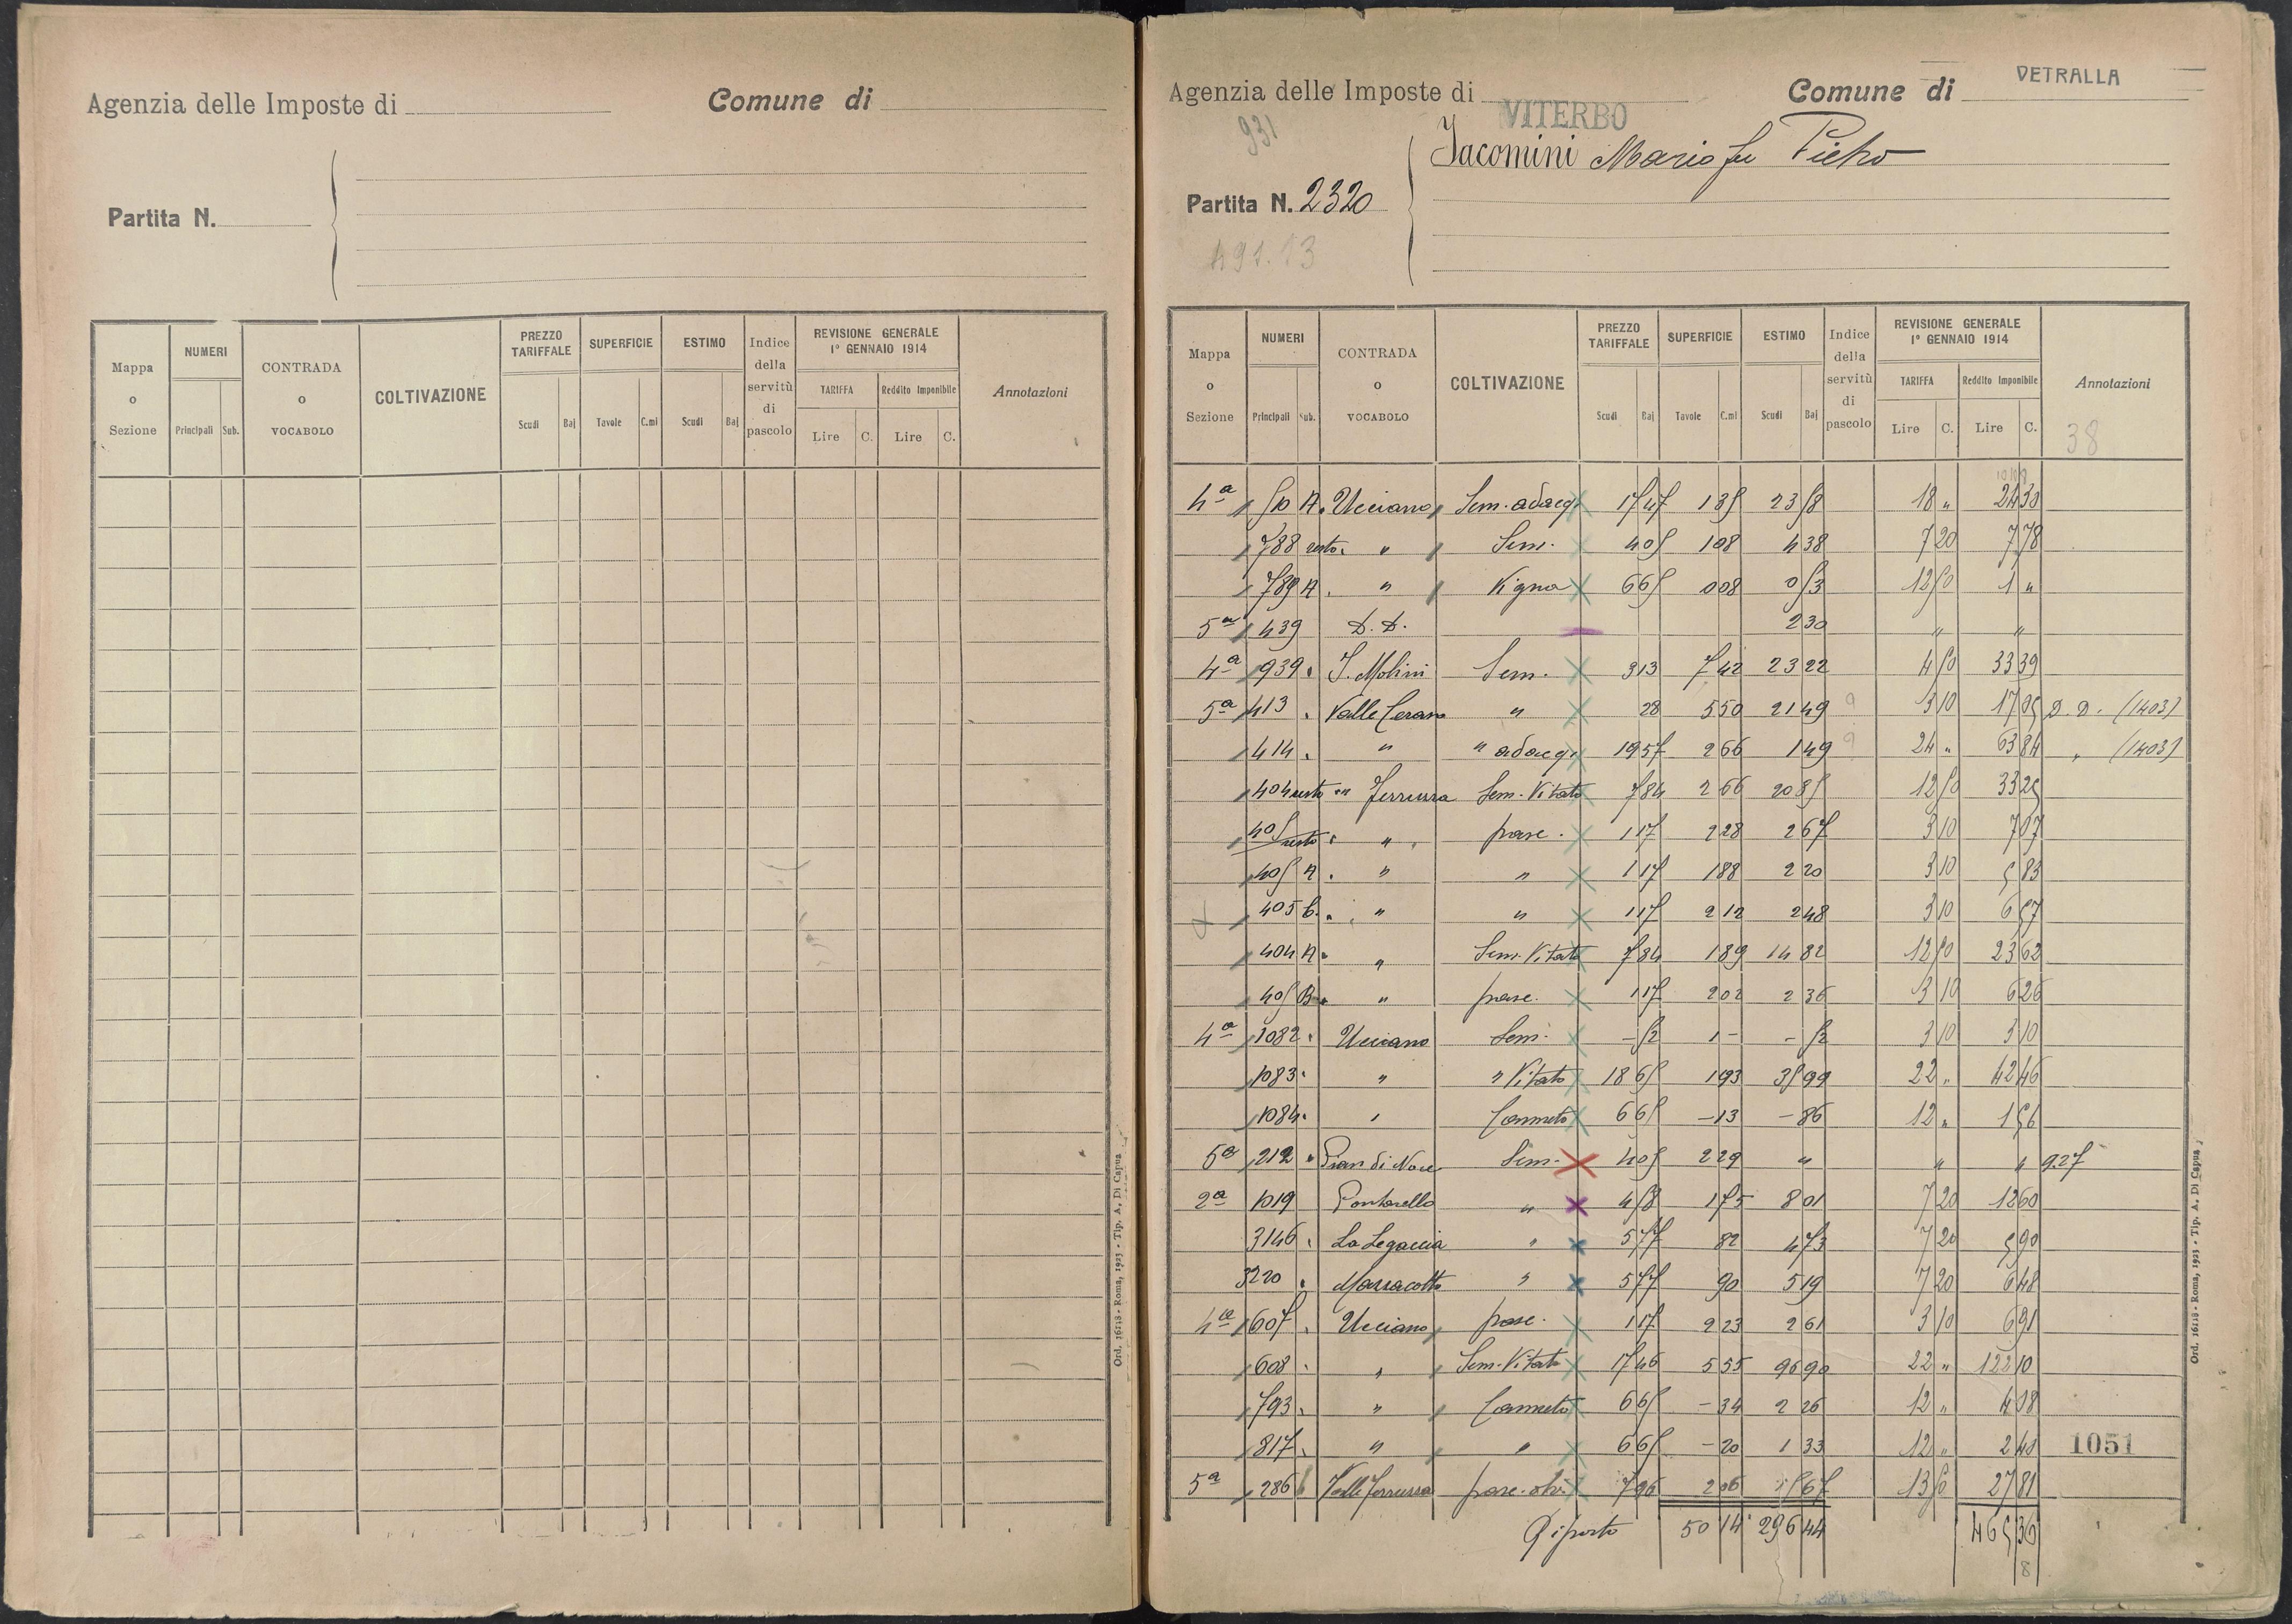 Agenzia delle Imposte di Comune di
Partita N.
Mappa o Sezione NUMERI Principali Sub. CONTRADA o VOCABOLO COLTIVAZIONE PREZZO TARIFFALE Scudi Baj SUPERFICIE Tavole C.mi ESTIMO Scudi Baj Indice della servitù di pascolo REVISIONE GENERALE 1° GENNAIO 1914 TARIFFA Lire C. Reddito Imponibile Lire C. Annotazioni
Ord. 16118 - Roma, 1923 - Tip. A. Di Capua
Agenzia delle Imposte di VITERBO Comune di VETRALLA
931
Iacomini Mario fu Pietro
Partita N. 2320
491.13
Mappa o Sezione NUMERI Principali Sub. CONTRADA o VOCABOLO COLTIVAZIONE PREZZO TARIFFALE Scudi Baj SUPERFICIE Tavole C.mi ESTIMO Scudi Baj Indice della servitù di pascolo REVISIONE GENERALE 1° GENNAIO 1914 TARIFFA Lire C. Reddito Imponibile Lire C. Annotazioni
38
4ª 510 A Ucciano Sem. adacq. 17 47 1 35 23 58 18 " 24 30
788 resto " Sem. 4 05 1 08 4 38 7 20 7 78
789 A " Vigna 6 65 0 08 0 53 12 50 1 "
5ª 439 D. D. 2 30 " "
4ª 939 S. Molini Sem. 3 13 7 42 23 22 4 50 33 39
5ª 413 Valle Cerasa " 28 5 50 21 49 9 3 10 17 05 D. D. (1403)
414 " " adacq. 19 57 2 66 1 49 9 24 " 63 84 " (1403)
404 resto " Ferrussa Sem. Vitato 7 84 2 66 20 85 12 50 33 25
405 resto " pasc. 1 17 2 28 2 67 3 10 7 07
405 A " " 1 17 1 88 2 20 3 10 5 83
405 C " " 1 17 2 12 2 48 3 10 6 57
404 A " Sem. Vitato 7 84 1 89 14 82 12 50 23 62
405 B " pasc. 1 17 2 02 2 36 3 10 6 26
4ª 1082 Ucciano Sem. - 52 1 - - 52 3 10 3 10
1083 " " Vitato 18 65 1 93 35 99 22 " 42 46
1084 " Canneto 6 65 - 13 - 86 12 " 1 56
5ª 212 Pian di Noce Sem. 4 05 2 29 " " " 927
2ª 1019 Pontarello " 4 58 1 75 8 01 7 20 12 60
3146 La Legaccia " 5 77 82 4 73 7 20 5 90
3220 Massacotto " 5 77 90 5 19 7 20 6 48
4ª 607 Ucciano pasc. 1 17 2 23 2 61 3 10 6 91
608 " Sem. Vitato 17 46 5 55 96 90 22 " 122 10
793 " Canneto 6 65 - 34 2 26 12 " 4 08
817 " " 6 65 - 20 1 33 12 " 2 40 1051
5ª 286 Valle Ferrussa pasc. oliv. 7 96 2 06 13 50 27 81
Riporto 50 14 296 44 465 36
8
Ord. 16118 - Roma, 1923 - Tip. A. Di Capua